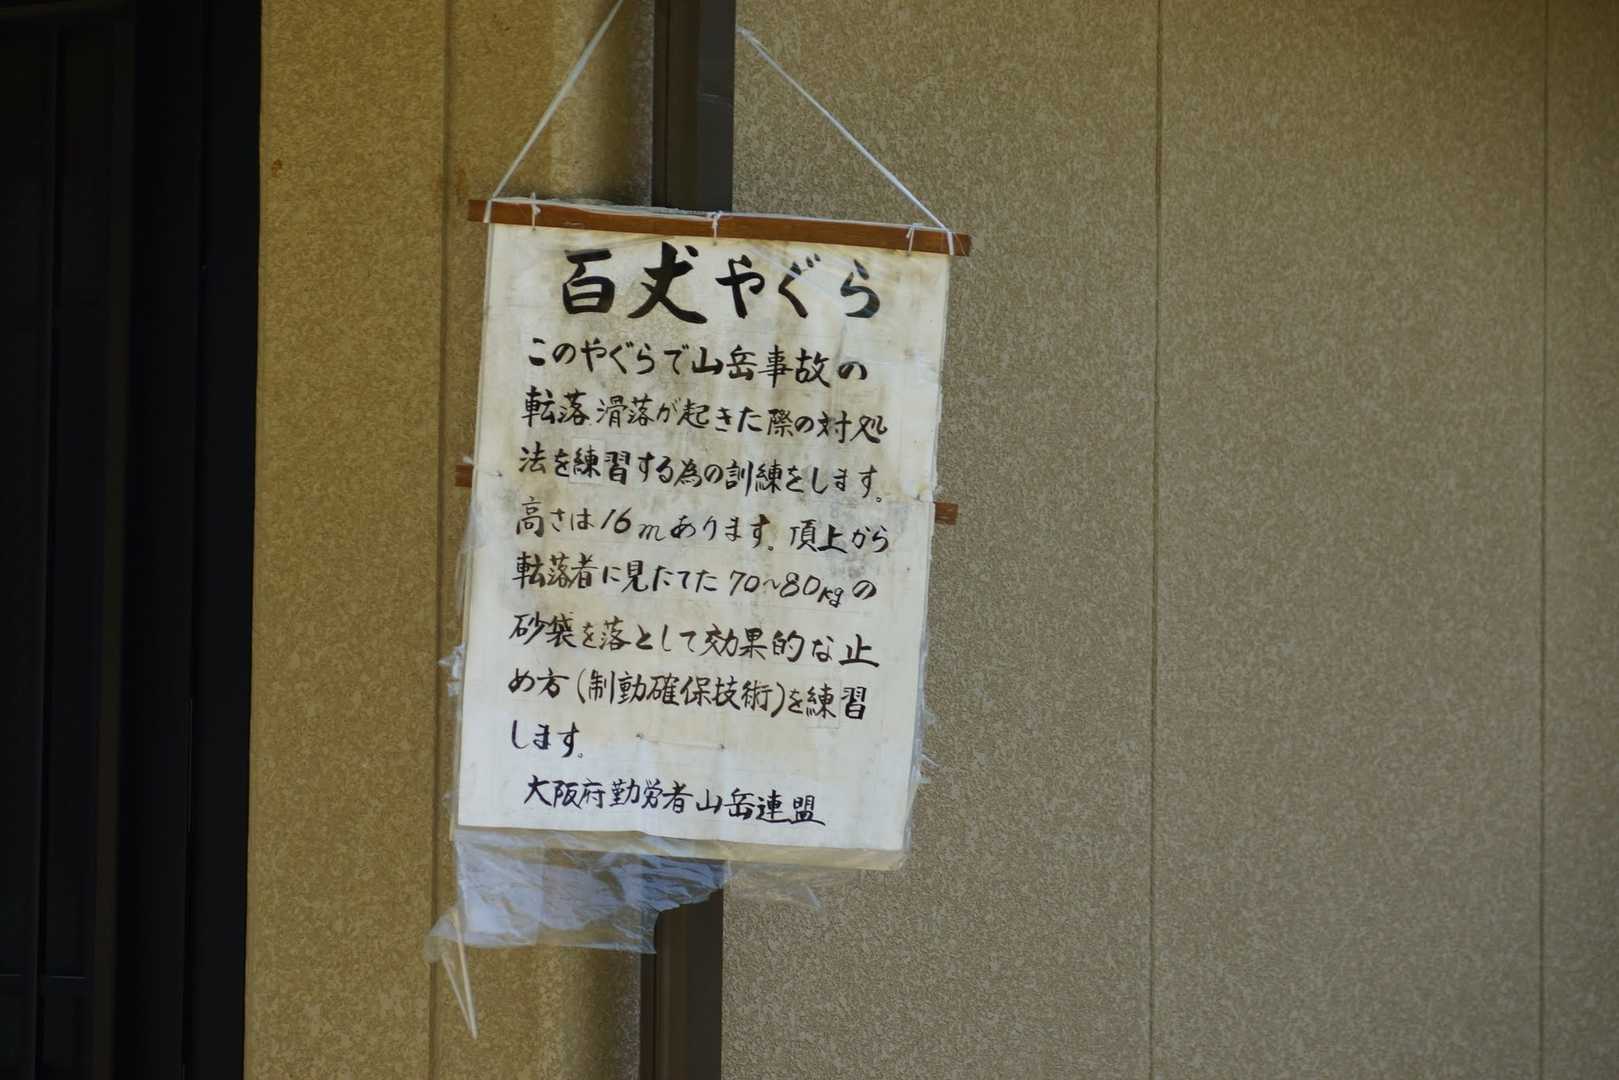 百丈やぐら
このやぐらで山岳事故の
転落.滑落が起きた際の対処
法を練習する為の訓練をします。
高さは16mあります。頂上から
転落者に見たてた70~80kgの
砂袋を落として効果的な止
め方(制動確保技術)を練習
します。
大阪府勤労者山岳連盟